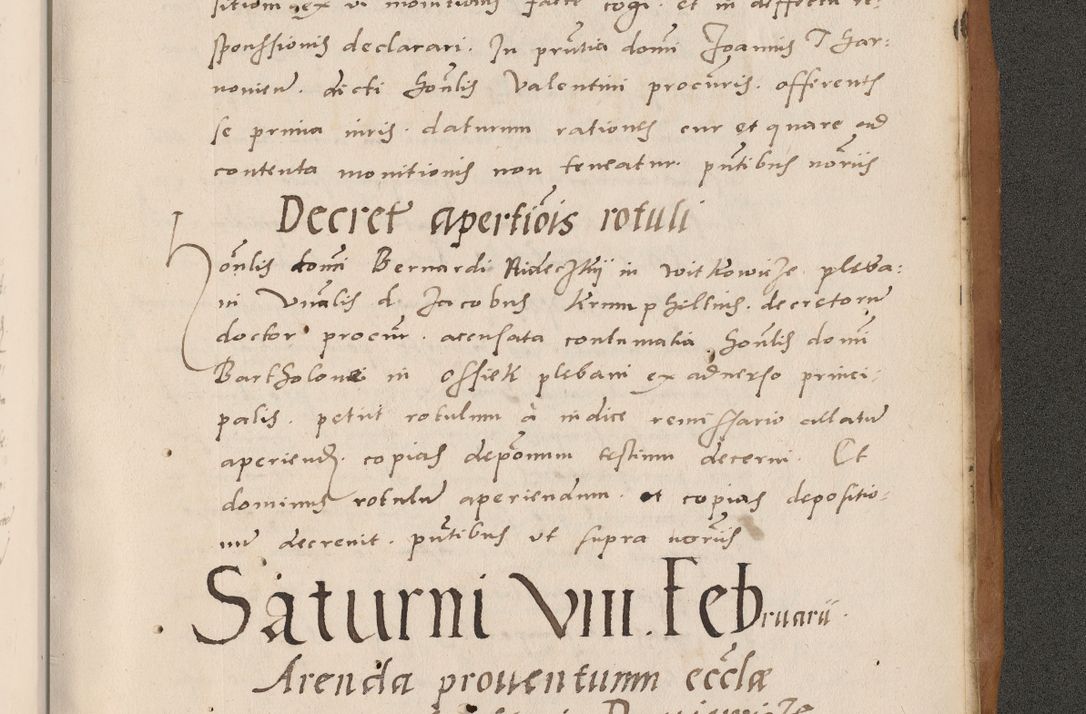 sitionis ex vi monitionis facte cogi. et in deffectu re:
sponssionis declarari. In pn̄tia domi Joannis T Har:
nonien̄. dicti honlis Valentini procuris. offerentis
se prima iuris. daturum rationes cur et quare ad
contenta monitionis non teneatur. pn̄tibus noriis
Decret apertiois rotuli
Honlis domi Bernardi Rideczkij in Witkowicze pleba:
ni Vnalis d. Jacobus Krumphillius. decretoru
doctor procur. acensata contumatia honlis domi
Bartholomei in Ossiek plebani ex aduerso princi:
palis. petiit rotulum a iudice remissario allatu
aperiendu. copias deponum testium decerni. Et
dominus rotulu aperiendum. et copias depositio:
num decreuit. pn̄tibus vt supra noriis
Saturni VIII. Februarii.
Arenda prouentuum ecclæ